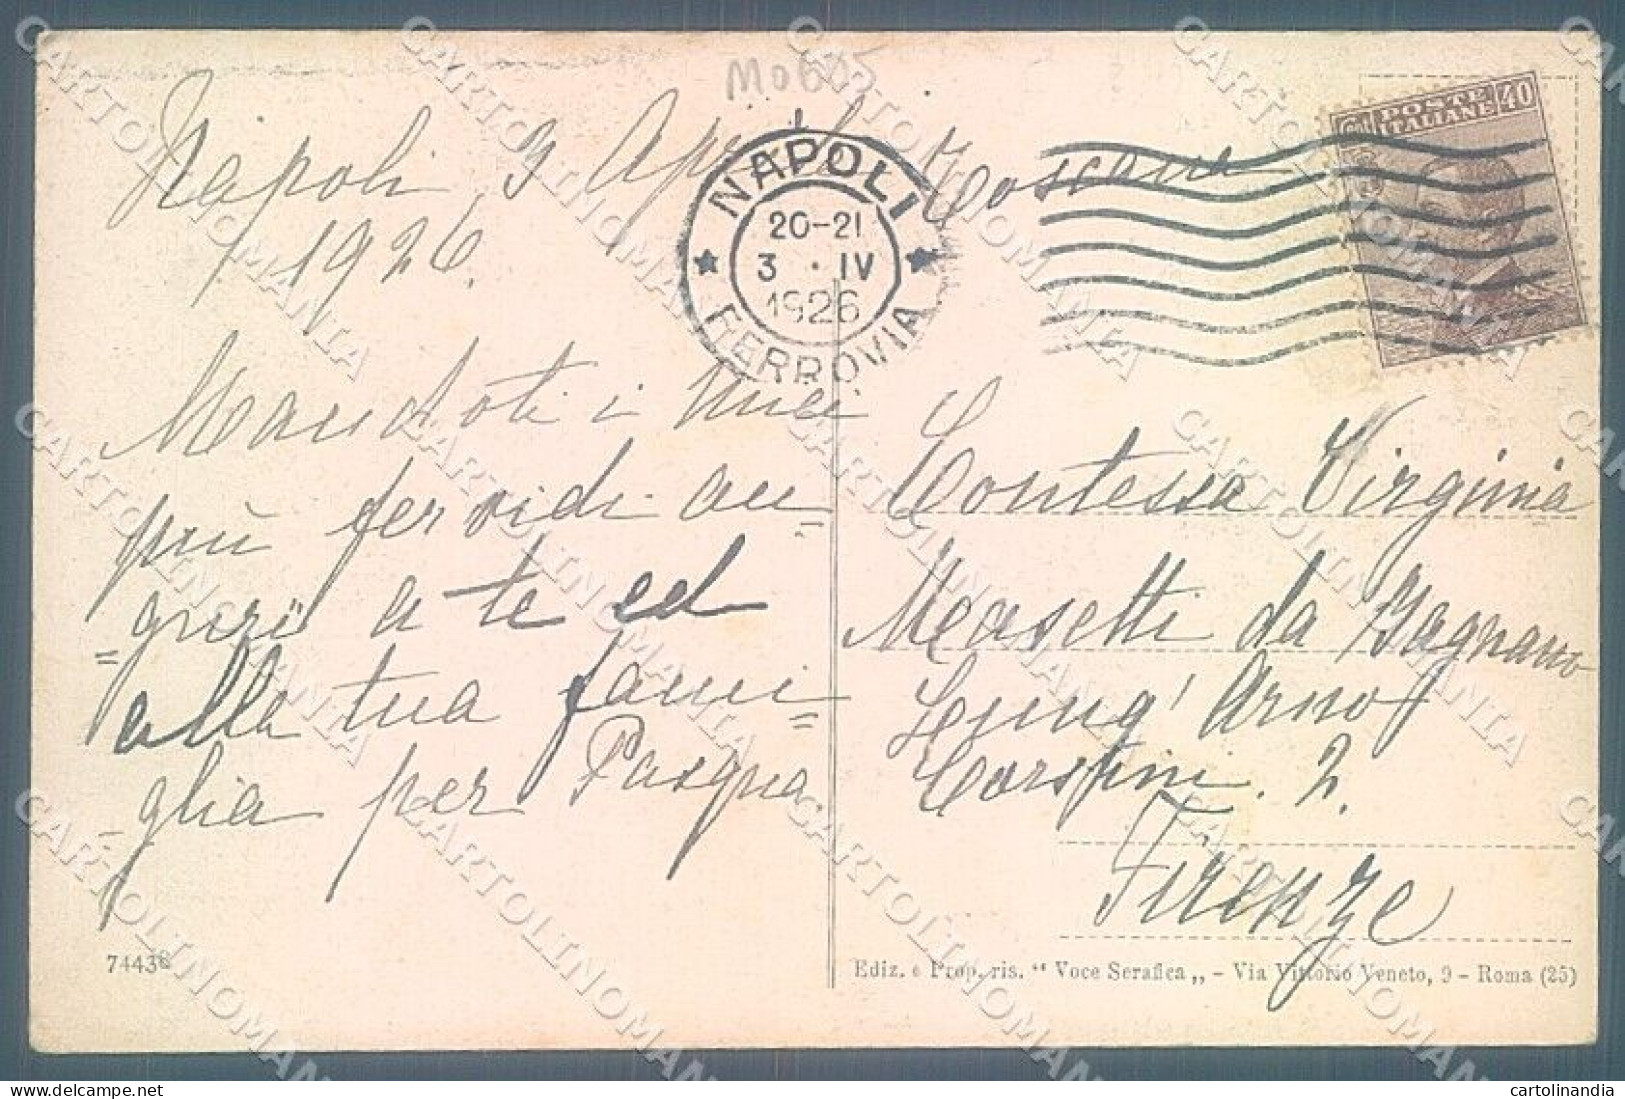 M0605
Napoli 3 Aprile
1926.
Mandoti i miei
più fervidi au=
=gurii a te ed
alla tua fami=
=glia per Pasqua.
NAPOLI
20-21
3 · IV
1926
FERROVIA
Toscana
POSTE
ITALIANE
40
Contessa Virginia
Masetti da Bagnano
Lung' Arno
Corsini. 2.
Firenze
74436
Ediz. e Prop. ris. “ Voce Serafica „ - Via Vittorio Veneto, 9 - Roma (25)
CARTOLINOMANIA
cartolinandia